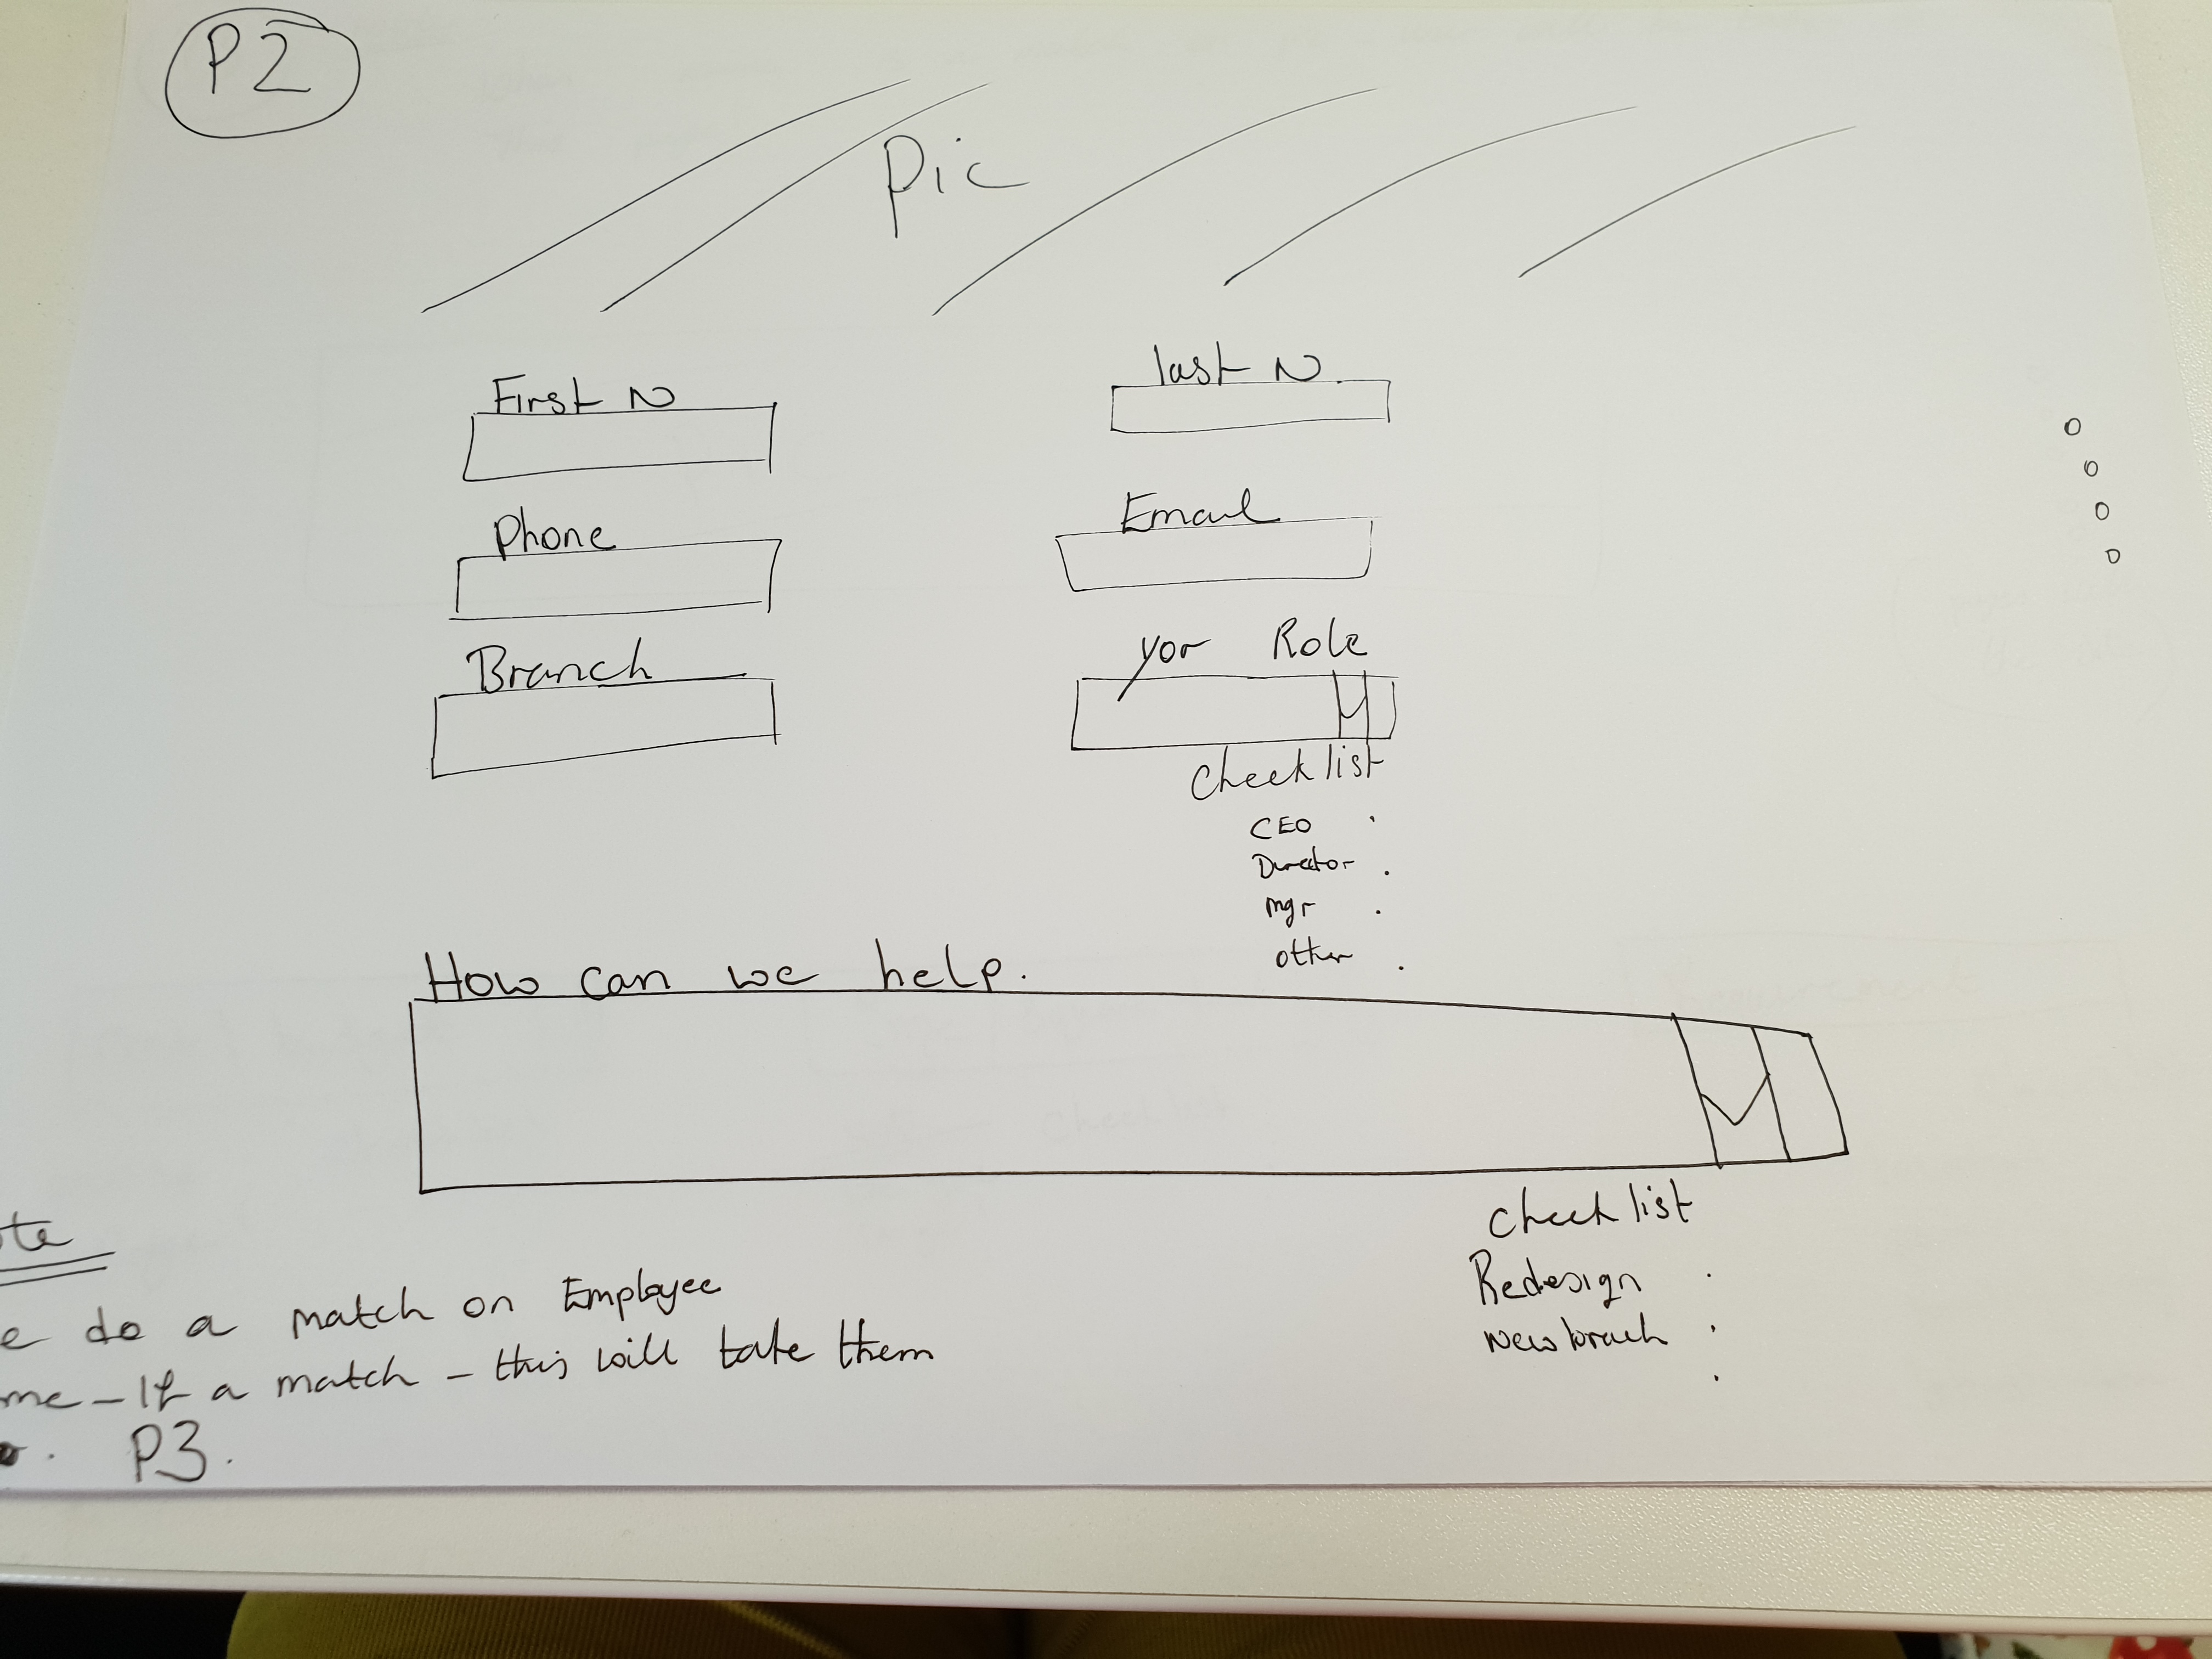 P2
Pic
First N
last N
Phone
Email
Branch
Yor Role
Check list
CEO
Director
Mgr
other
How can we help.
Check list
Redesign
New branch
te
e do a match on Employee
me - If a match - this will take them
P3.